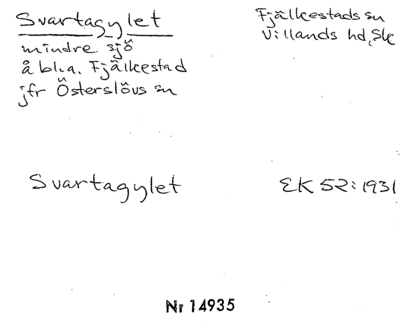 Svartagylet
Fjälkestads sn
Villands hd, Sk
mindre sjö
å bl.a. Fjälkestad
jfr Österslövs sn
Svartagylet
EK 52:1931
Nr 14935